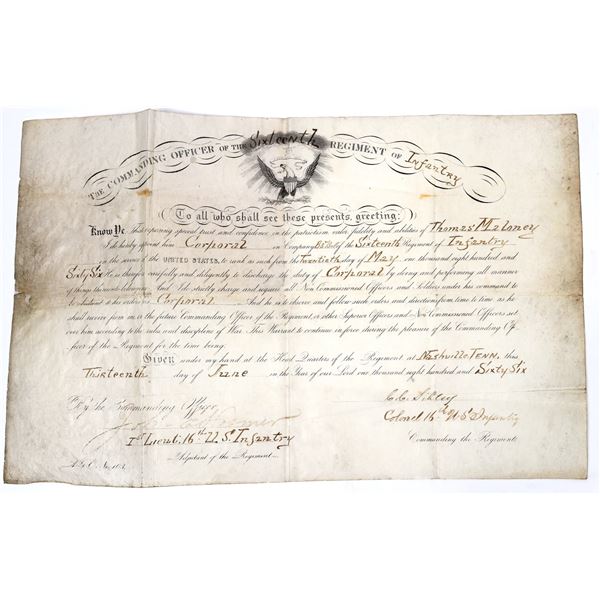 THE COMMANDING OFFICER OF THE Sixteenth REGIMENT OF Infantry
To all who shall see these presents, greeting:
Know Ye, that reposing special trust and confidence in the patriotism, valor, fidelity and abilities of Thomas Maloney
I do hereby appoint him Corporal in Company of the Sixteenth Regiment of Infantry
in the service of the UNITED STATES, to rank as such from the Twentieth day of May one thousand eight hundred and
Sixty Six He is therefore carefully and diligently to discharge the duty of Corporal by doing and performing all manner
of things thereunto belonging. And I do strictly charge and require all Non-Commissioned Officers and Soldiers under his command to
be obedient to his orders as Corporal And he is to observe and follow such orders and directions from time to time, as he
shall receive from me, or the future Commanding Officer of the Regiment, or other Superior Officers and Non-Commissioned Officers set
over him according to the rules and discipline of War. This Warrant to continue in force during the pleasure of the Commanding Of-
ficer of the Regiment for the time being.
Given under my hand at the Head Quarters of the Regiment at Nashville Tenn. this
Thirteenth day of June in the Year of our Lord one thousand eight hundred and Sixty Six
By the Commanding Officer,
C. C. Sibley
Colonel 16th U.S. Infantry
1st Lieut. 16th U.S. Infantry
Commanding the Regiment.
Adjutant of the Regiment.